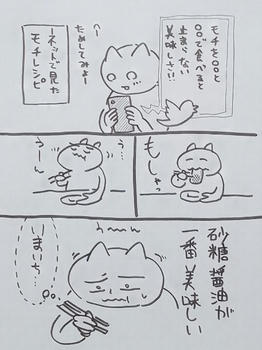 モチを〇〇と
〇〇で食べると
止まらない
美味しさ!!
へー
ためしてみよー
ーネットで見た
モチレシピー
もしゃっ
う…
うーん
砂糖醤油が
一番美味しい
うーん
いまいち…